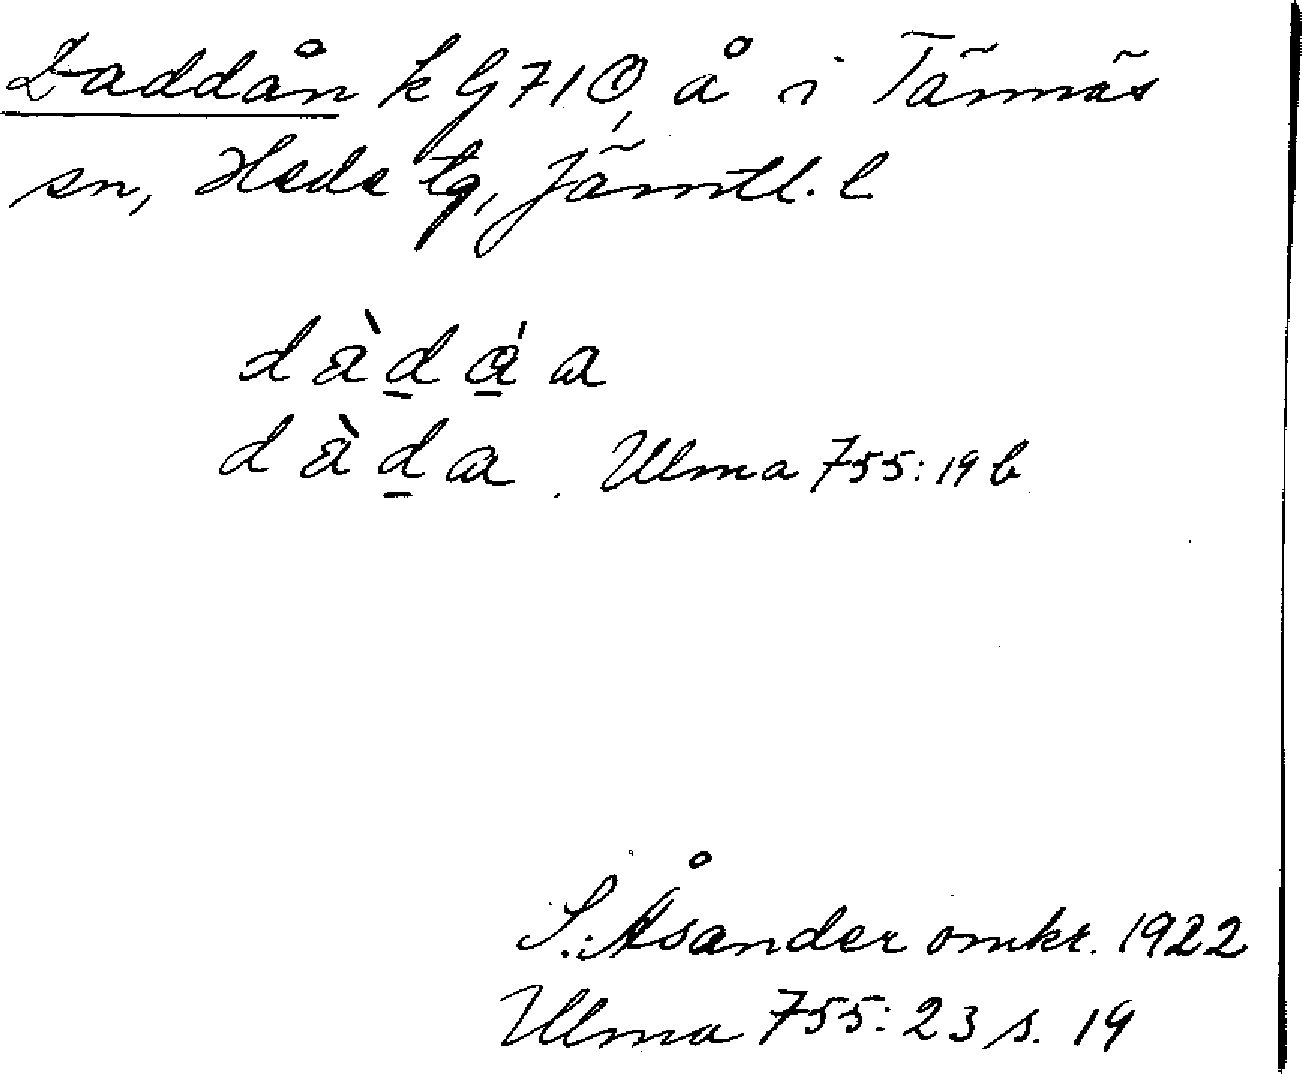 Daddån k G 71 O, å i Tännäs
sn, Hede tg, Jämtl. l
dàd̲á̲ a
dàd̲a . Ulma 755:19 b
S. Åsander omkr. 1922
Ulma 755:23 s. 19